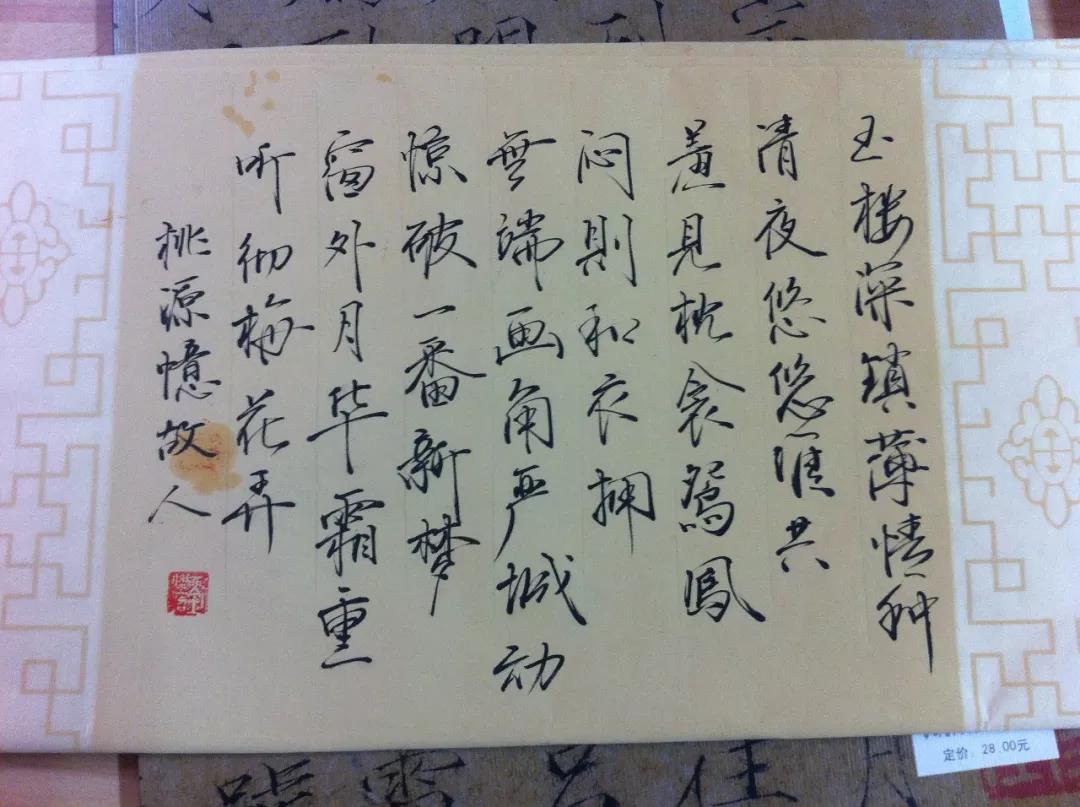 玉楼深鎖薄情种
清夜悠悠谁共
羞見枕衾鴛鳳
闷則和衣拥
無端画角严城动
惊破一番新梦
窗外月华霜重
听彻梅花弄
桃源憶故人
定价：28.00元